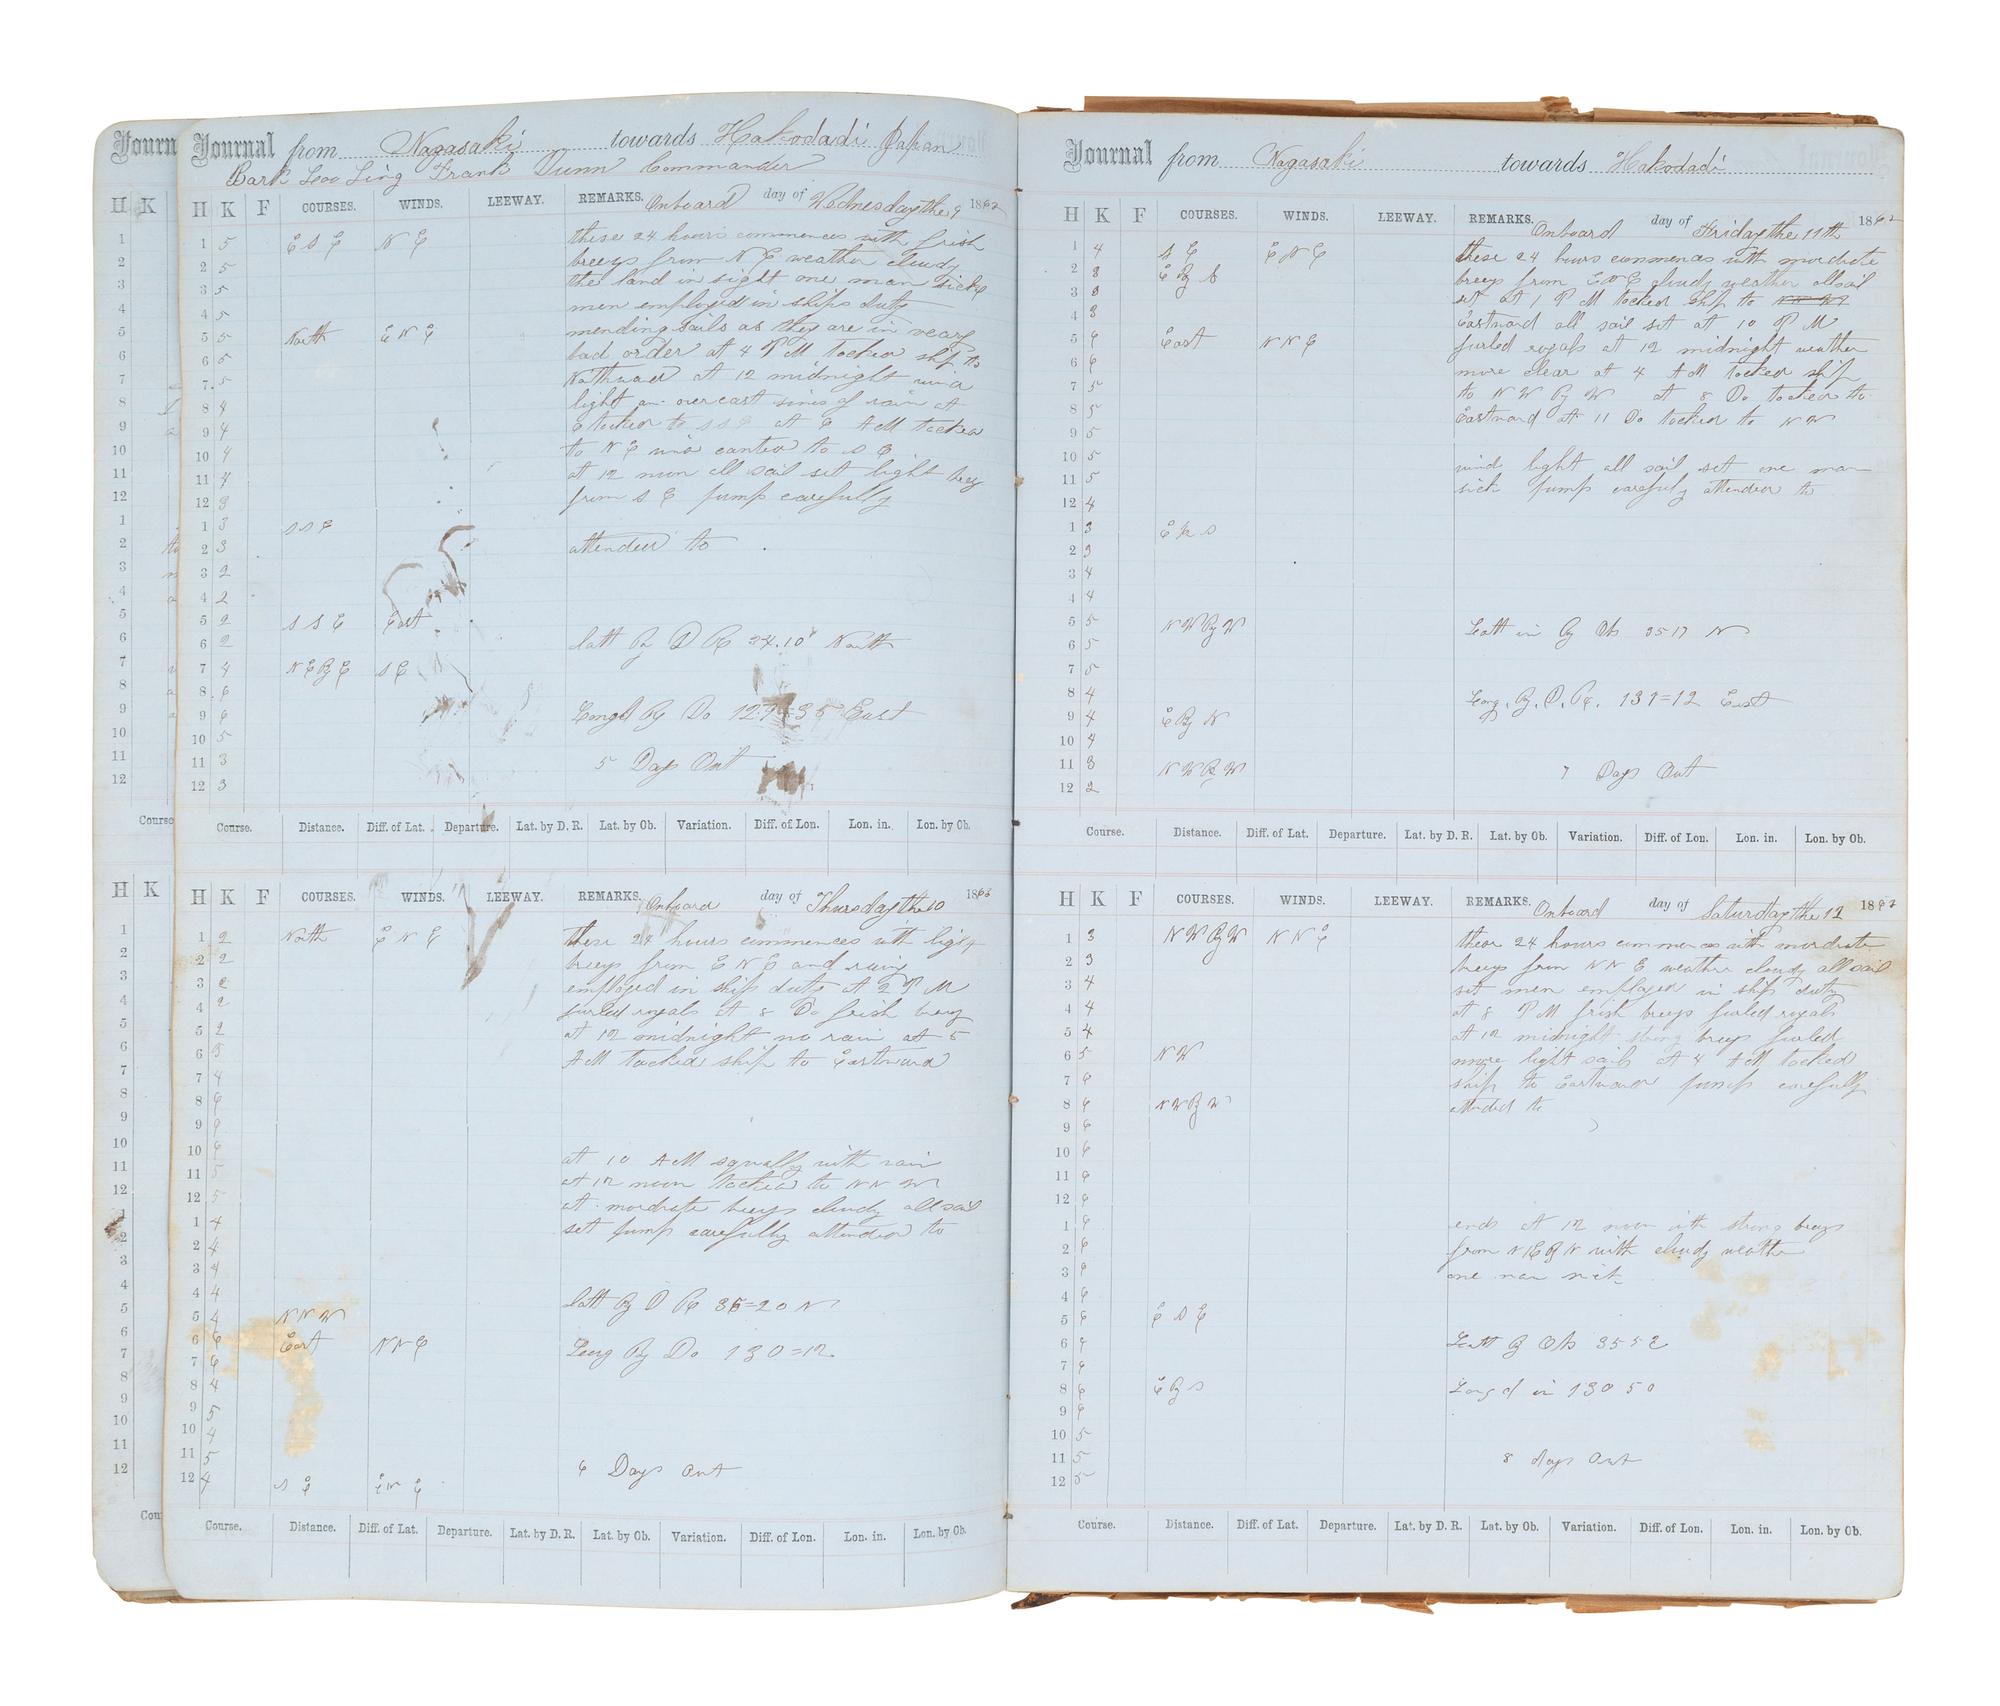 Journal from Nagasaki towards Hakodadi Japan
Bark Leoo Ling Frank Dunn Commander
H K F COURSES. WINDS. LEEWAY. REMARKS. Onboard day of Wednesday the 9 1862
1 5 E S E N E these 24 hours commences with frish
2 5 breeys from N E weather cloudy
3 5 the land in sight one man sick
4 5 men employed in ships duty
5 5 North E N E mending sails as they are in veary
6 5 bad order at 4 P M tacked ship to
7 5 Nothward at 12 midnight wind
8 4 light an overcast sines of rain at
9 4 tocked to S S E at 6 A M tocked
10 4 to N E wind canted to S E
11 4 at 12 noon all sail set light brey
12 3 from S E pump carefully
1 3 S S E
2 3 attended to
3 2
4 2
5 2 S S E East
6 2 latt By D R 34.10 North
7 4 N E B E S E
8 6
9 6 Longd By Do 129=35 East
10 5
11 3 5 Days Out
12 3
Course. Distance. Diff. of Lat. Departure. Lat. by D. R. Lat. by Ob. Variation. Diff. of Lon. Lon. in. Lon. by Ob.
H K F COURSES. WINDS. LEEWAY. REMARKS. Onboard day of Thursday the 10 186
1 2 North E N E these 24 hours commences with light
2 2 breeys from E N E and rainy
3 2 employed in ship duty at 2 P M
4 2 furled royals at 8 Do frish breey
5 2 at 12 midnight no rain at 5
6 5 A M tacked ship to Eastward
7 4
8 6
9 6
10 6 at 10 A M squally with rain
11 5 at 12 noon tocked to N N W
12 5 at mordrate breeys cloudy all sail
1 4 set pump carefully attended to
2 4
3 4
4 4 latt By D R 35=20 N
5 4 N N W
6 6 East N N E Long By Do 130=12
7 6
8 4
9 5
10 4
11 5 6 Days Out
12 4 S E E N E
Course. Distance. Diff. of Lat. Departure. Lat. by D. R. Lat. by Ob. Variation. Diff. of Lon. Lon. in. Lon. by Ob.
Journal from Nagasaki towards Hakodadi
H K F COURSES. WINDS. LEEWAY. REMARKS. Onboard day of Friday the 11th 1862
1 4 S E E N E these 24 hours commences with mordrate
2 3 E By S breeys from E N E cloudy weather all sail
3 3 set at 1 P M tocked ship to
4 3 Eastward all sail set at 10 P M
5 6 East N N E furled royals at 12 midnight weather
6 6 more clear at 4 A M tocked ship
7 5 to N W By W at 8 Do tocked to
8 5 Eastward at 11 Do tocked to N W
9 5
10 5 wind light all sail set one man
11 5 sick pump carefuly attended to
12 4
1 3 E B S
2 3
3 4
4 4
5 5 N W By W Latt in By Ob 35 17 N
6 5
7 5
8 4 Long. By. D. R. 131=12 East
9 4 E By N
10 4
11 3 N W By W 7 Days Out
12 2
Course. Distance. Diff. of Lat. Departure. Lat. by D. R. Lat. by Ob. Variation. Diff. of Lon. Lon. in. Lon. by Ob.
H K F COURSES. WINDS. LEEWAY. REMARKS. Onboard day of Saturday the 12 1862
1 3 N W By W N N E these 24 hours commences with mordrate
2 3 breeys from N N E weather cloudy all sail
3 4 set men employed in ship duty
4 4 at 8 P M frish breeys furled royals
5 4 at 12 midnight strong breeys furled
6 5 N W more light sails at 4 A M tocked
7 6 ship to Eastward pump carefully
8 6 N W B W attended to
9 6
10 6
11 6
12 6
1 6 ends at 12 noon with strong breeys
2 6 from N E B N with cloudy weather
3 6 one man sick
4 6
5 6 E S E
6 6 Latt By Ob 35 52
7 6
8 6 E By S Longd in 130 50
9 6
10 5
11 5 8 days Out
12 5
Course. Distance. Diff. of Lat. Departure. Lat. by D. R. Lat. by Ob. Variation. Diff. of Lon. Lon. in. Lon. by Ob.